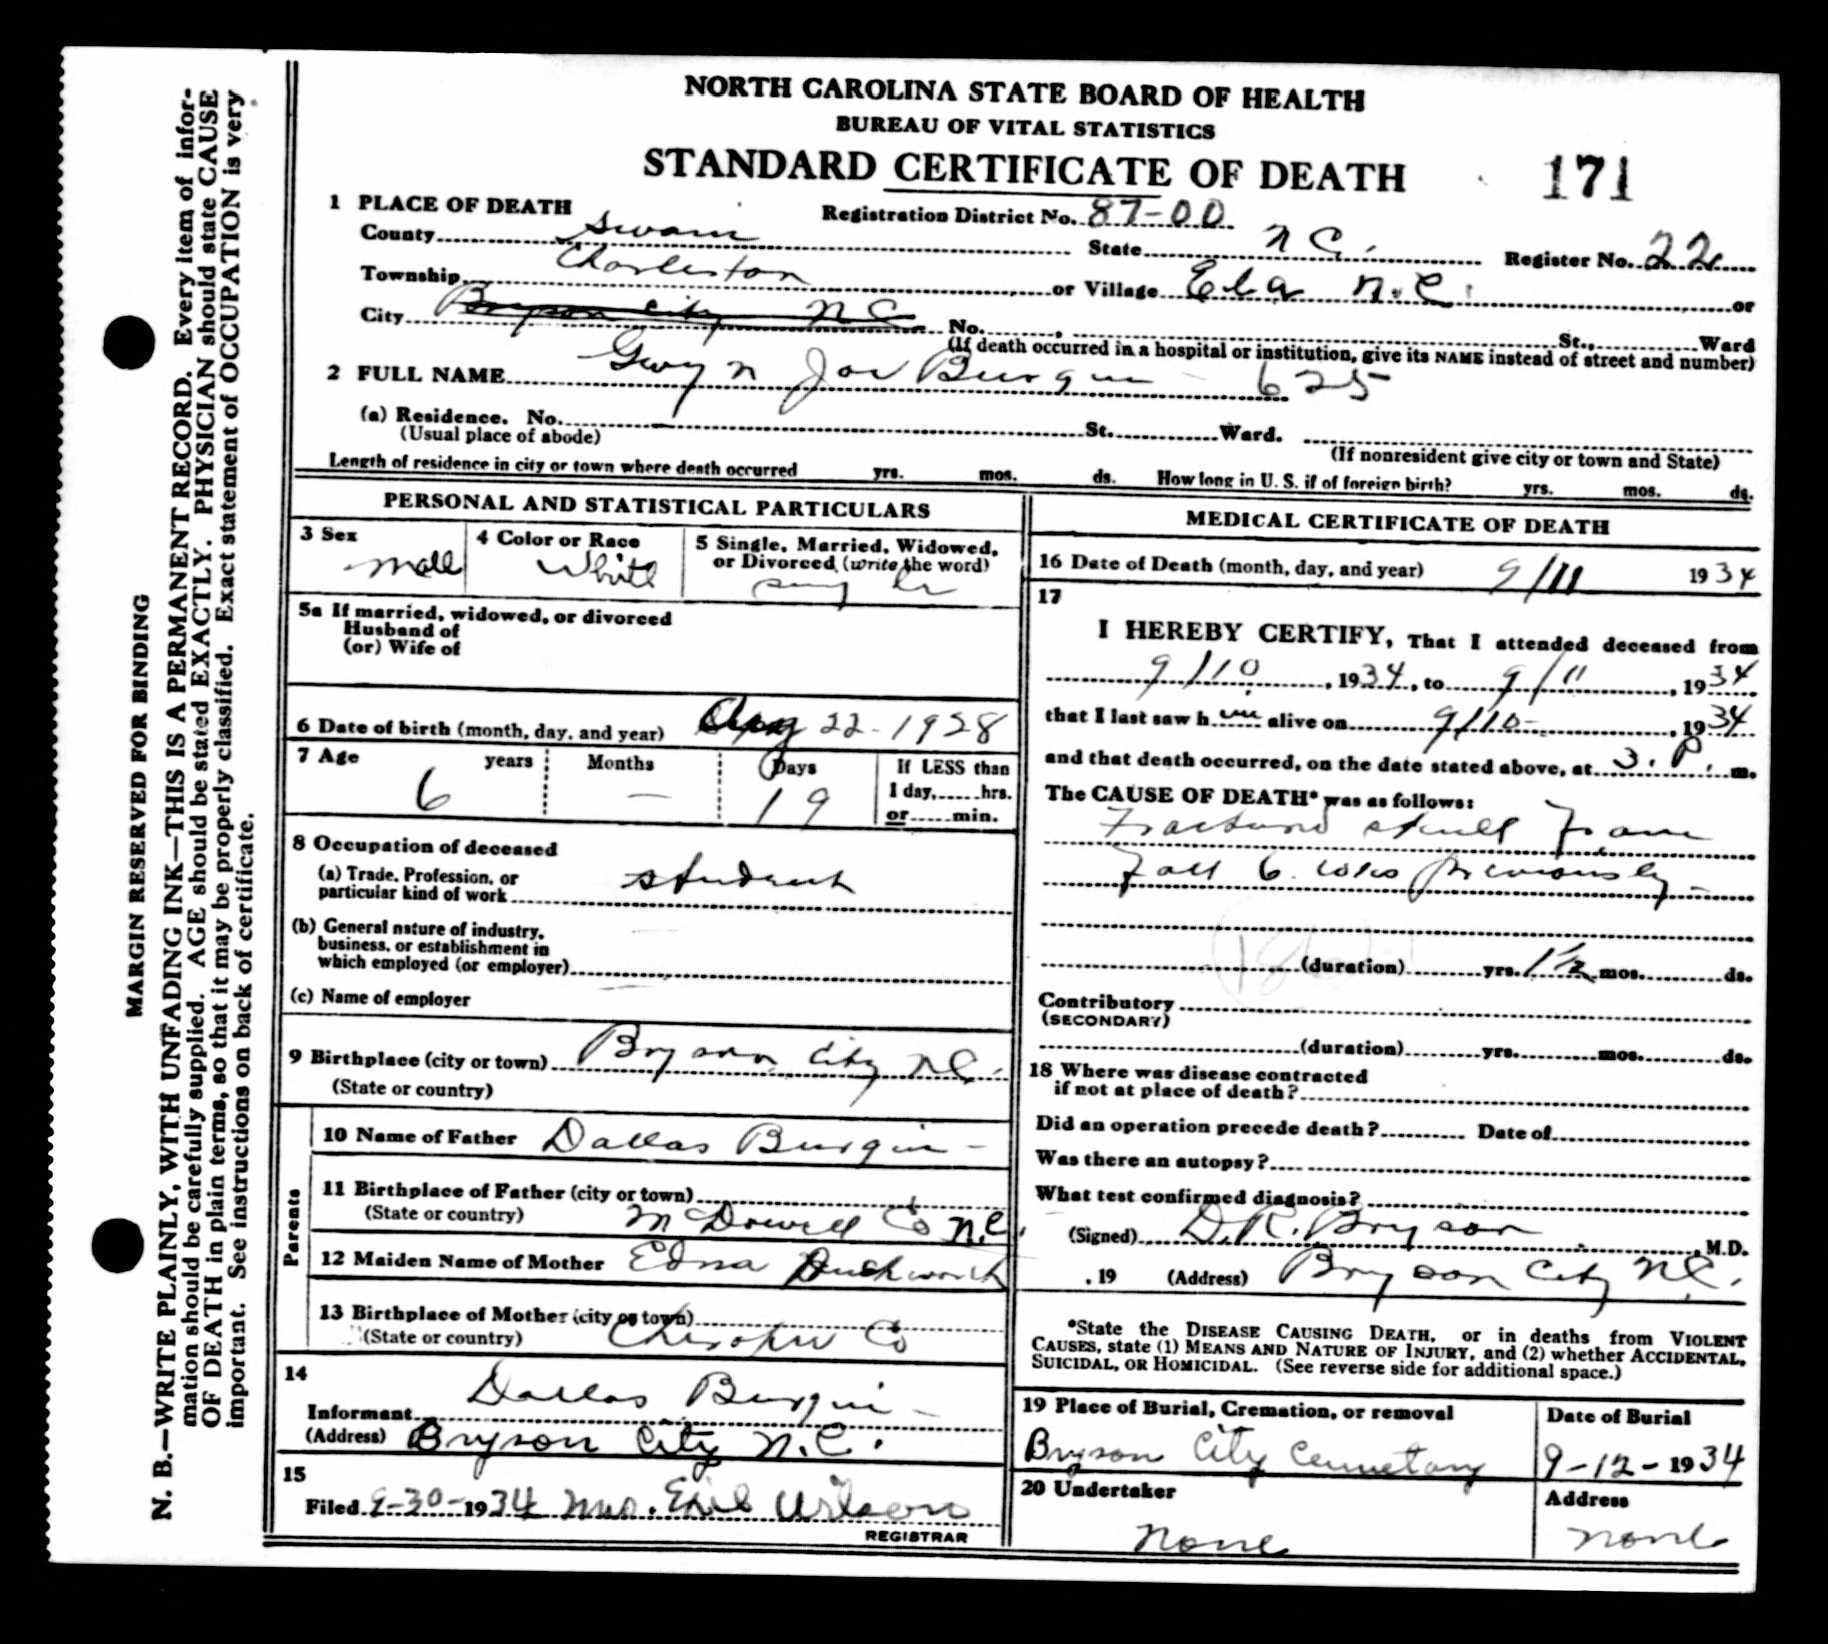 NORTH CAROLINA STATE BOARD OF HEALTH
BUREAU OF VITAL STATISTICS
STANDARD CERTIFICATE OF DEATH
171
1 PLACE OF DEATH
Registration District No. 87-00
County Swain State N C. Register No. 22
Township Charleston or Village Ela N.C. or
City Bryson City N C No. , St., Ward
(If death occurred in a hospital or institution, give its NAME instead of street and number)
2 FULL NAME Gwyn Joe Burgin - 625
(a) Residence. No. St. Ward.
(Usual place of abode) (If nonresident give city or town and State)
Length of residence in city or town where death occurred yrs. mos. ds. How long in U. S. if of foreign birth? yrs. mos. ds.
PERSONAL AND STATISTICAL PARTICULARS
3 Sex
Male
4 Color or Race
White
5 Single, Married, Widowed,
or Divorced (write the word)
Single
5a If married, widowed, or divorced
Husband of
(or) Wife of
6 Date of birth (month, day, and year) Aug 22-1928
7 Age years Months Days If LESS than
6 — 19 1 day, hrs.
or min.
8 Occupation of deceased
(a) Trade, Profession, or
particular kind of work student
(b) General nature of industry,
business, or establishment in
which employed (or employer)
(c) Name of employer
9 Birthplace (city or town) Bryson City N.C.
(State or country)
Parents
10 Name of Father Dallas Burgin -
11 Birthplace of Father (city or town)
(State or country) McDowell Co N.C.
12 Maiden Name of Mother Edna Duckworth
13 Birthplace of Mother (city or town)
(State or country) Co
14
Informant Dallas Burgin -
(Address) Bryson City N.C.
15
Filed 9-30-1934 Mrs. Wilson
REGISTRAR
MEDICAL CERTIFICATE OF DEATH
16 Date of Death (month, day, and year) 9/11 1934
17
I HEREBY CERTIFY, That I attended deceased from
9/10, 1934, to 9/11, 1934
that I last saw him alive on 9/10-, 1934
and that death occurred, on the date stated above, at 3. P. m.
The CAUSE OF DEATH* was as follows:
Fractured skull from
Fall 6. wks previously -
(duration) yrs. 1½ mos. ds.
Contributory
(SECONDARY)
(duration) yrs. mos. ds.
18 Where was disease contracted
if not at place of death?
Did an operation precede death? Date of
Was there an autopsy?
What test confirmed diagnosis?
(Signed) D.R. Bryson M.D.
, 19 (Address) Bryson City N.C.
*State the DISEASE CAUSING DEATH, or in deaths from VIOLENT
CAUSES, state (1) MEANS AND NATURE OF INJURY, and (2) whether ACCIDENTAL,
SUICIDAL, OR HOMICIDAL. (See reverse side for additional space.)
19 Place of Burial, Cremation, or removal
Bryson City Cemetary
Date of Burial
9-12-1934
20 Undertaker
None
Address
None
MARGIN RESERVED FOR BINDING
N. B.—WRITE PLAINLY, WITH UNFADING INK—THIS IS A PERMANENT RECORD. Every item of infor-
mation should be carefully supplied. AGE should be stated EXACTLY. PHYSICIAN should state CAUSE
OF DEATH in plain terms, so that it may be properly classified. Exact statement of OCCUPATION is very
important. See instructions on back of certificate.